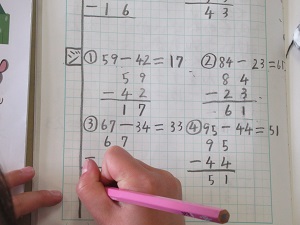 －16
43
① 59－42＝17
59
－42
17
② 84－23＝6
84
－23
61
③ 67－34＝33
67
－
④ 95－44＝51
95
－44
51